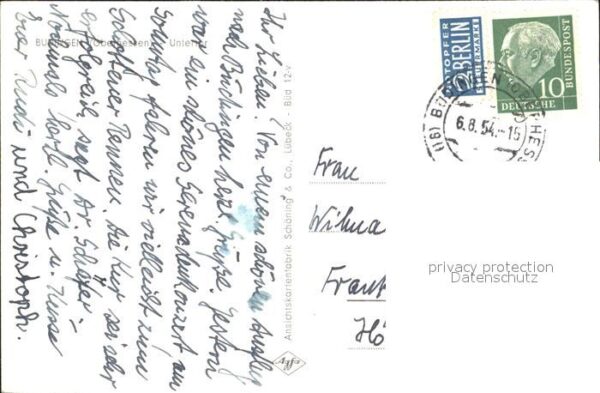 BÜDINGEN (Oberhessen) Untertor
Ihr Lieben! Von einem schönen Ausflug
nach Büdingen herzl. Grüße. Gestern
war ein schönes Serenadenkonzert am
Sonntag fahren wir vielleicht zum
Schottener Rennen. Die Kur sei sehr
erfolgreich, sagt Dr. Schäfer
Nochmals herzl. Grüße u. Küsse
Euer Rudi und Christoph.
Ansichtskartenfabrik Schöning & Co., Lübeck - Büd 12-v
Agfa
NOTOPFER
2 BERLIN
STEUERMARKE
10
DEUTSCHE
BUNDESPOST
(16) BÜDINGEN (OBERHESS)
6.8.54.-15
Frau
Wilma
Frank
Hö
privacy protection
Datenschutz